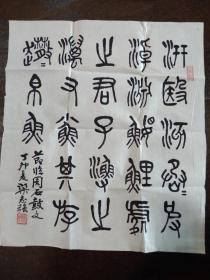 汧殹沔=
淖淵鰋鯉處
之君子漁之
澫又小魚其斿
帛魚
節臨周石鼓文
丁卯夏梁